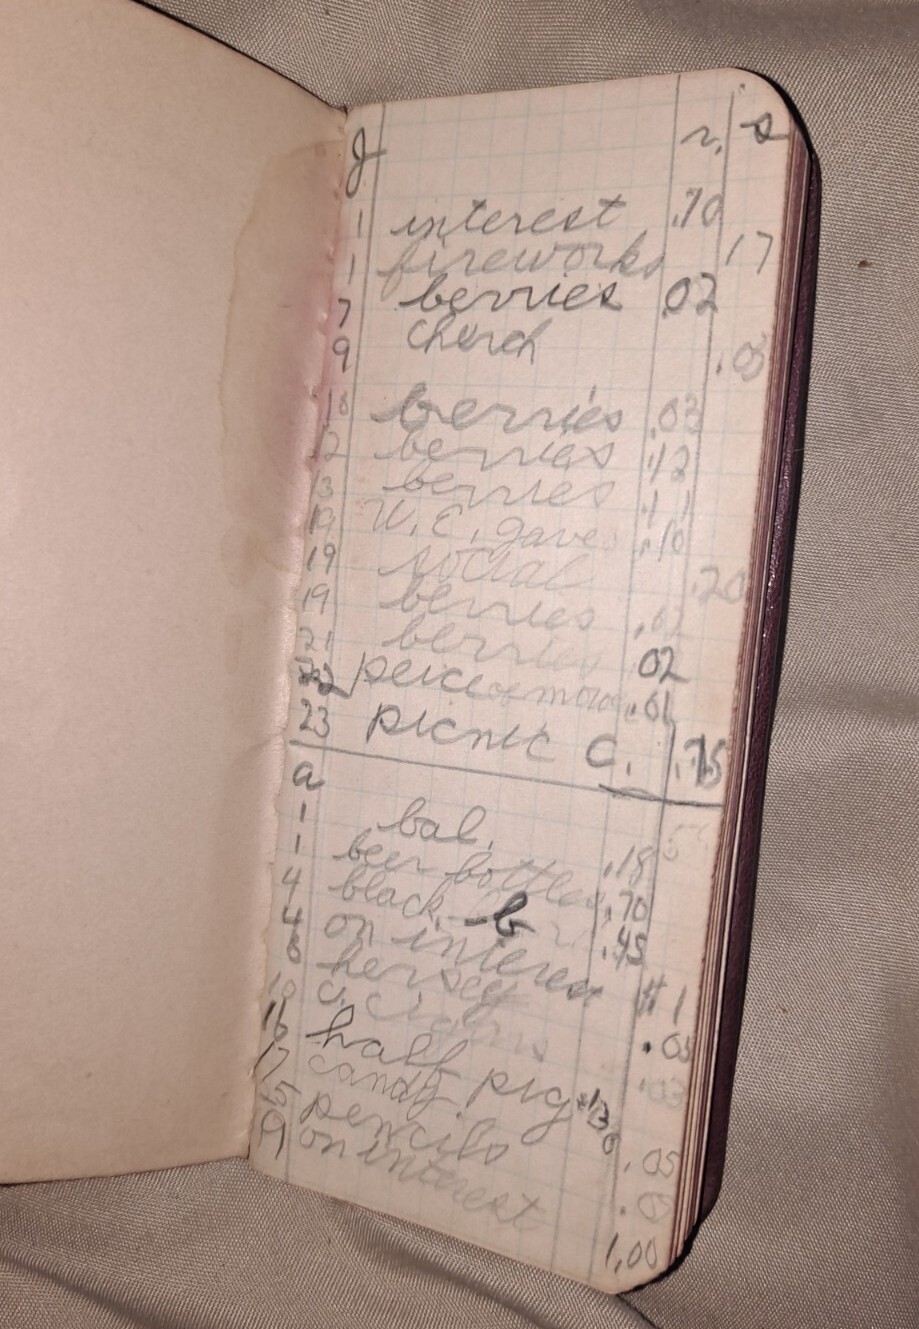 J r. s
1 interest .70
1 fireworks 17
7 berries 02
9 cherch .05
10 berries .03
12 berries .12
13 berries .11
19 W. E. gave .10
19 social .20
19 berries
21 berries 02
22 peice of mow .01
23 picnic C. .75
a
1 bal. .18
1 beer bottles .70
4 black b .45
4 on interest #1
8 hersey .05
10 .03
16 half pig
17 candy .05
5 pencils
9 on interest 1.00